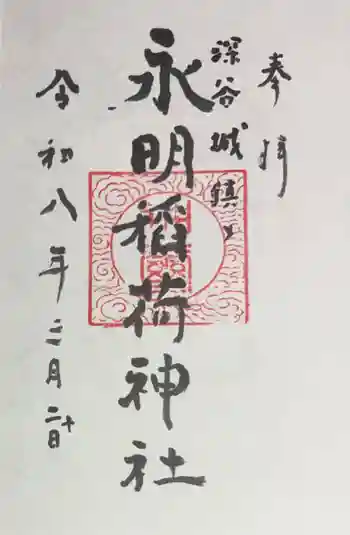 奉拝
深谷城鎮〻
永明稲荷神社
令和八年三月二十日